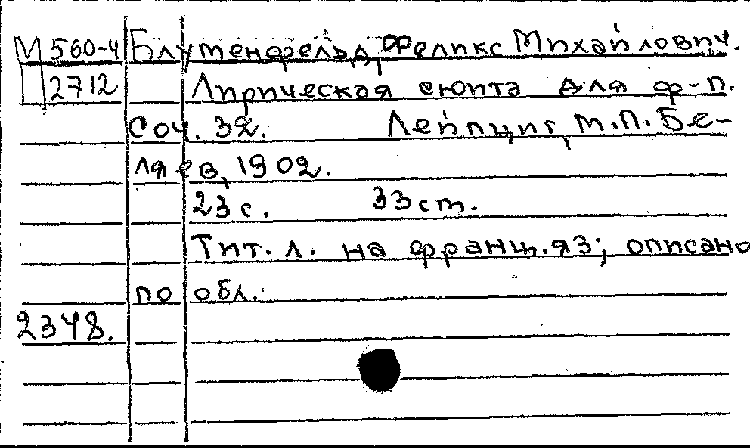 М 560-4 Блуменфельд, Феликс Михайлович.
П 2712 Лирическая сюита для ф-п.
Соч. 32. Лейпциг, М.П. Бе-
ляев, 1902.
23 с. 33 ст.
Тит. л. на франц. яз; описано
по обл.
2348.